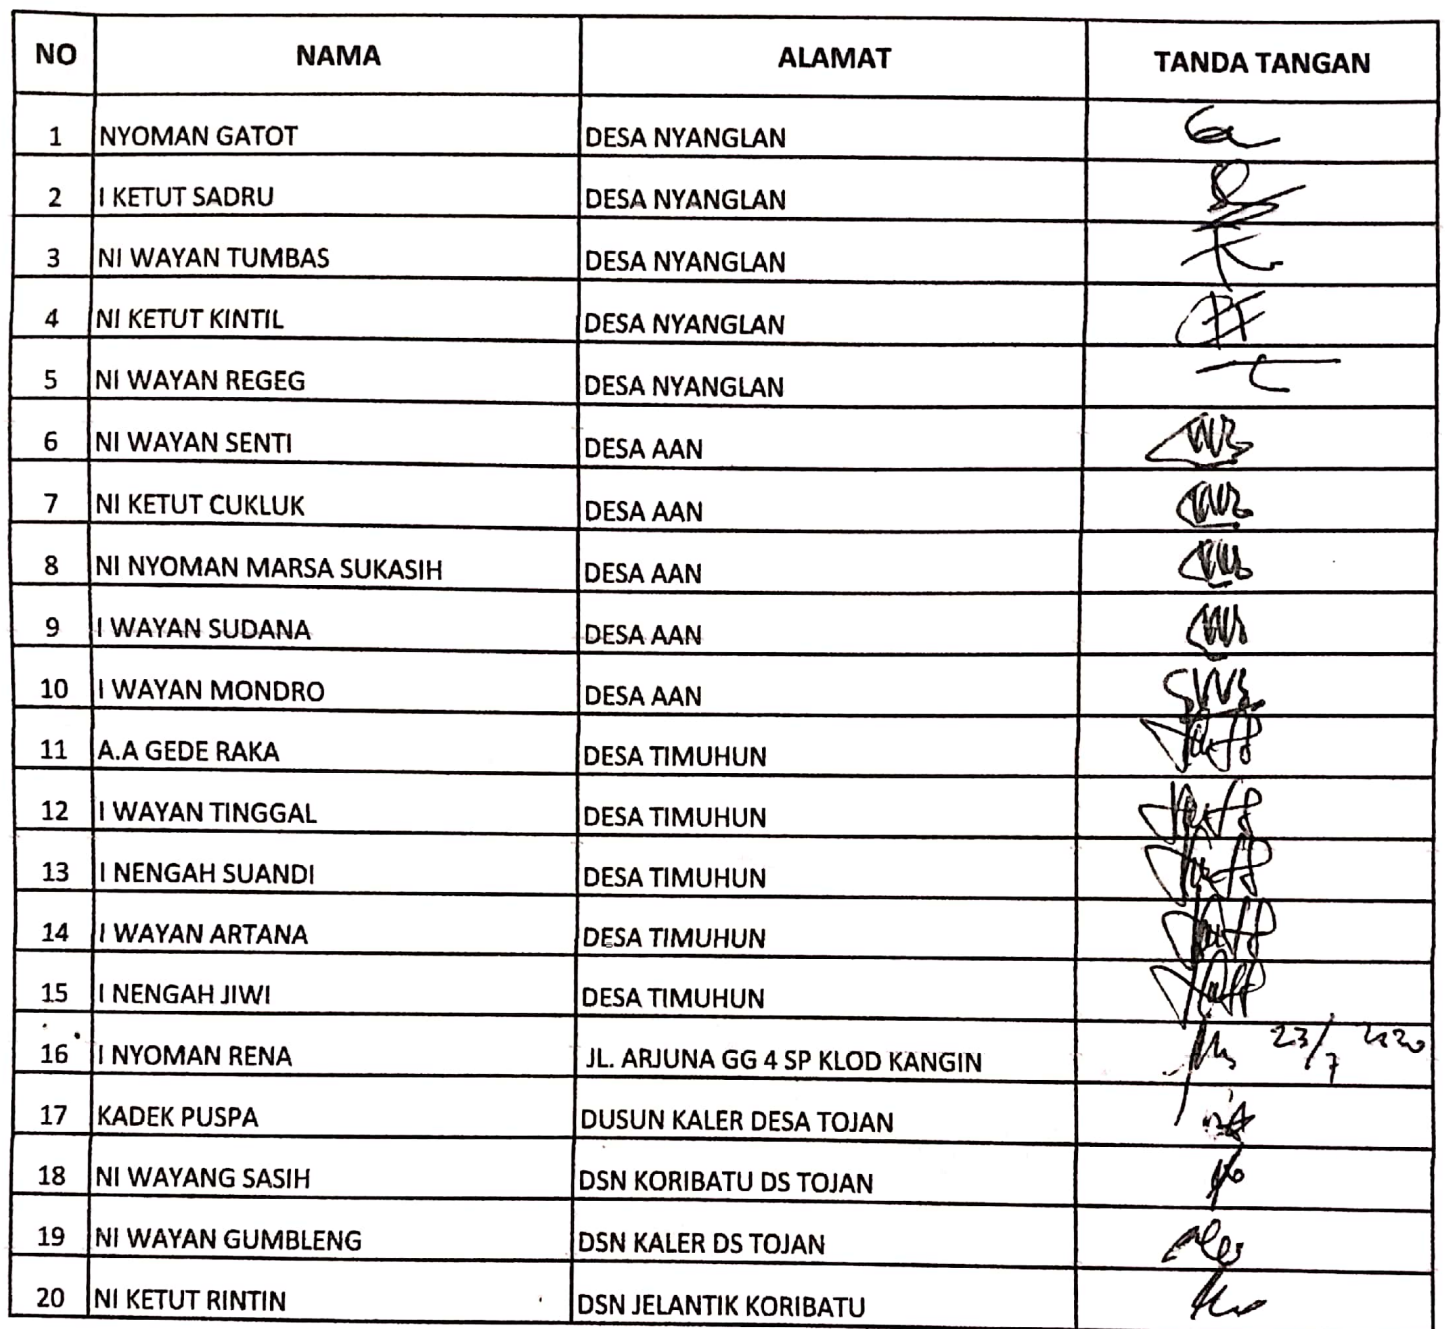 NO NAMA ALAMAT TANDA TANGAN
1 NYOMAN GATOT DESA NYANGLAN
2 I KETUT SADRU DESA NYANGLAN
3 NI WAYAN TUMBAS DESA NYANGLAN
4 NI KETUT KINTIL DESA NYANGLAN
5 NI WAYAN REGEG DESA NYANGLAN
6 NI WAYAN SENTI DESA AAN
7 NI KETUT CUKLUK DESA AAN
8 NI NYOMAN MARSA SUKASIH DESA AAN
9 I WAYAN SUDANA DESA AAN
10 I WAYAN MONDRO DESA AAN
11 A.A GEDE RAKA DESA TIMUHUN
12 I WAYAN TINGGAL DESA TIMUHUN
13 I NENGAH SUANDI DESA TIMUHUN
14 I WAYAN ARTANA DESA TIMUHUN
15 I NENGAH JIWI DESA TIMUHUN
16 I NYOMAN RENA JL. ARJUNA GG 4 SP KLOD KANGIN 23/7 2020
17 KADEK PUSPA DUSUN KALER DESA TOJAN
18 NI WAYANG SASIH DSN KORIBATU DS TOJAN
19 NI WAYAN GUMBLENG DSN KALER DS TOJAN
20 NI KETUT RINTIN DSN JELANTIK KORIBATU